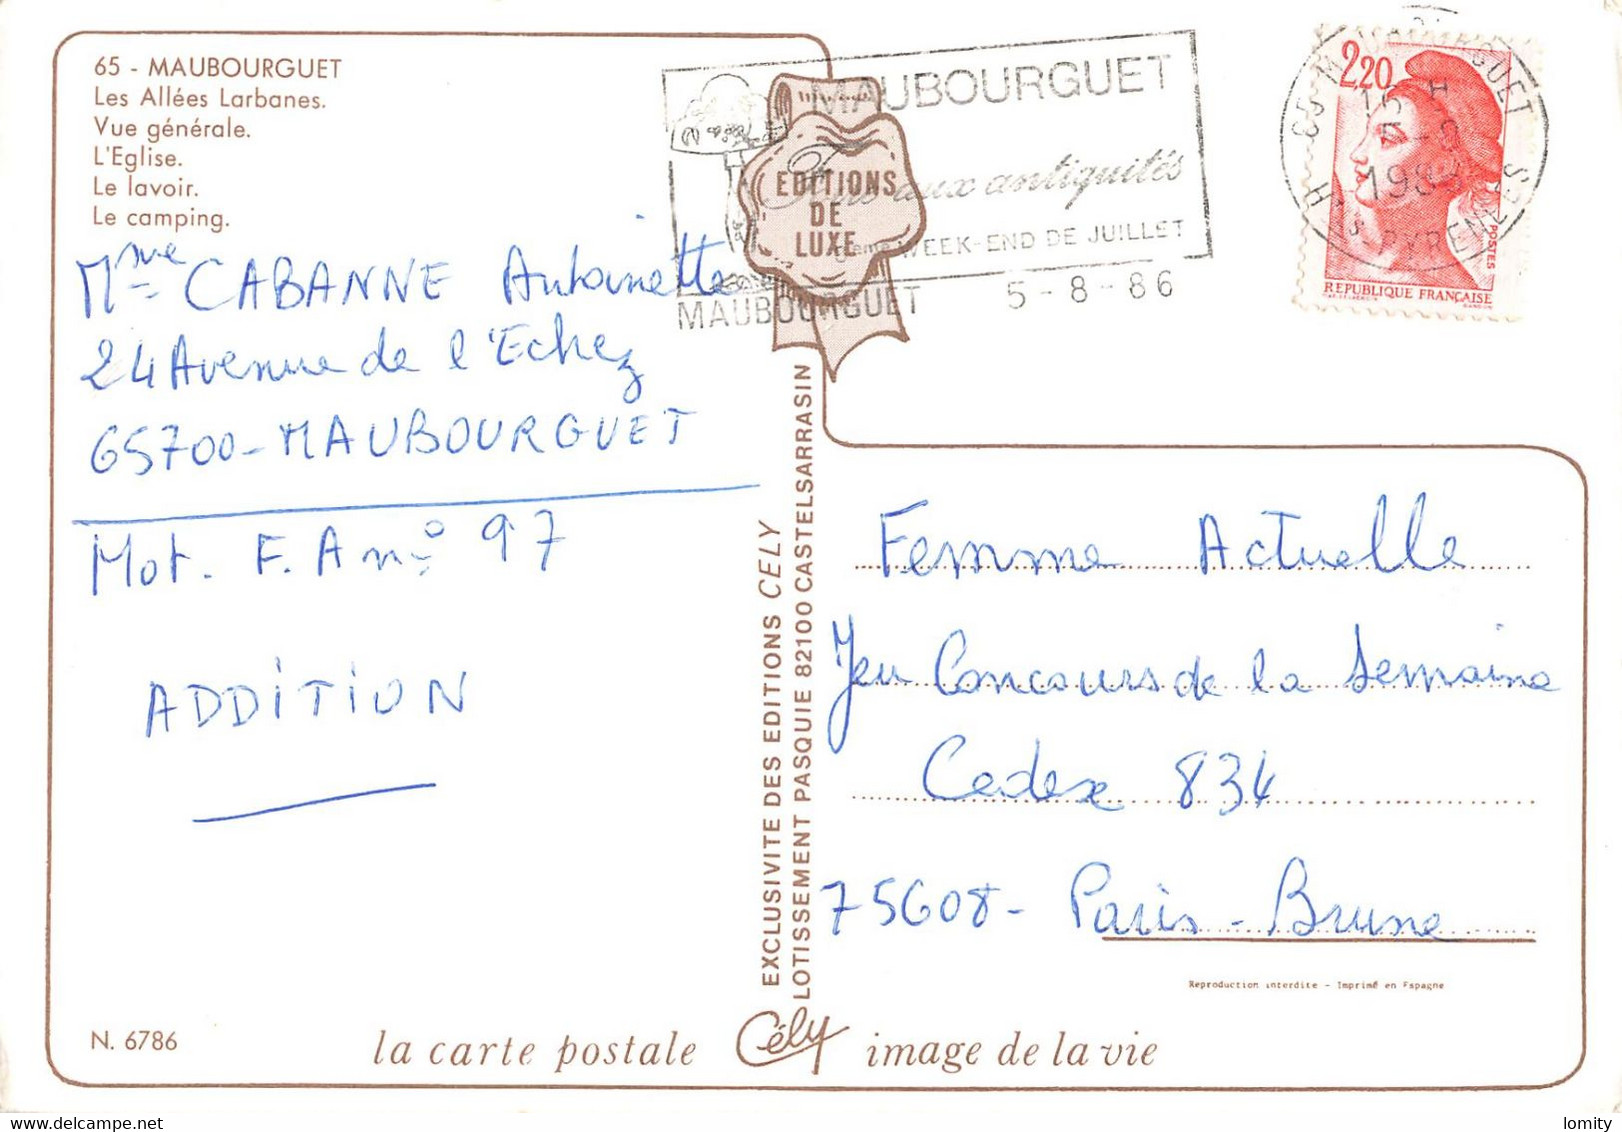 65 - MAUBOURGUET
Les Allées Larbanes.
Vue générale.
L'Eglise.
Le lavoir.
Le camping.
Mme CABANNE Antoinette
24 Avenue de l'Echez
65700 - MAUBOURGUET
Mot. F. A n° 97
ADDITION
N. 6786
MAUBOURGUET
aux antiquités
WEEK-END DE JUILLET
MAUBOURGUET 5-8-86
EDITIONS
DE
LUXE
2,20
POSTES
REPUBLIQUE FRANÇAISE
16 H
5-8
EXCLUSIVITE DES EDITIONS CELY
LOTISSEMENT PASQUIE 82100 CASTELSARRASIN
Femme Actuelle
Jeu Concours de la Semaine
Cedex 834
75608 - Paris - Brune
Reproduction interdite - Imprimé en Espagne
la carte postale Cély image de la vie
delcampe.net
lomity